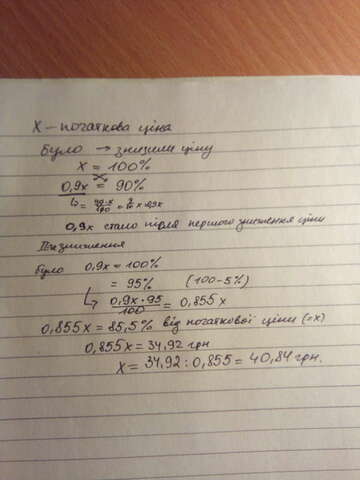 X – початкова ціна
Було → знизили ціну
x = 100%
0,9x = 90%
= 90·x / 100 = 0,9x
0,9x стало після першого зниження ціни
II зниження
Було 0,9x = 100%
= 95% (100-5%)
0,9x·95 / 100 = 0,855x
0,855x = 85,5% від початкової ціни (=x)
0,855x = 34,92 грн
x = 34,92 : 0,855 = 40,84 грн.